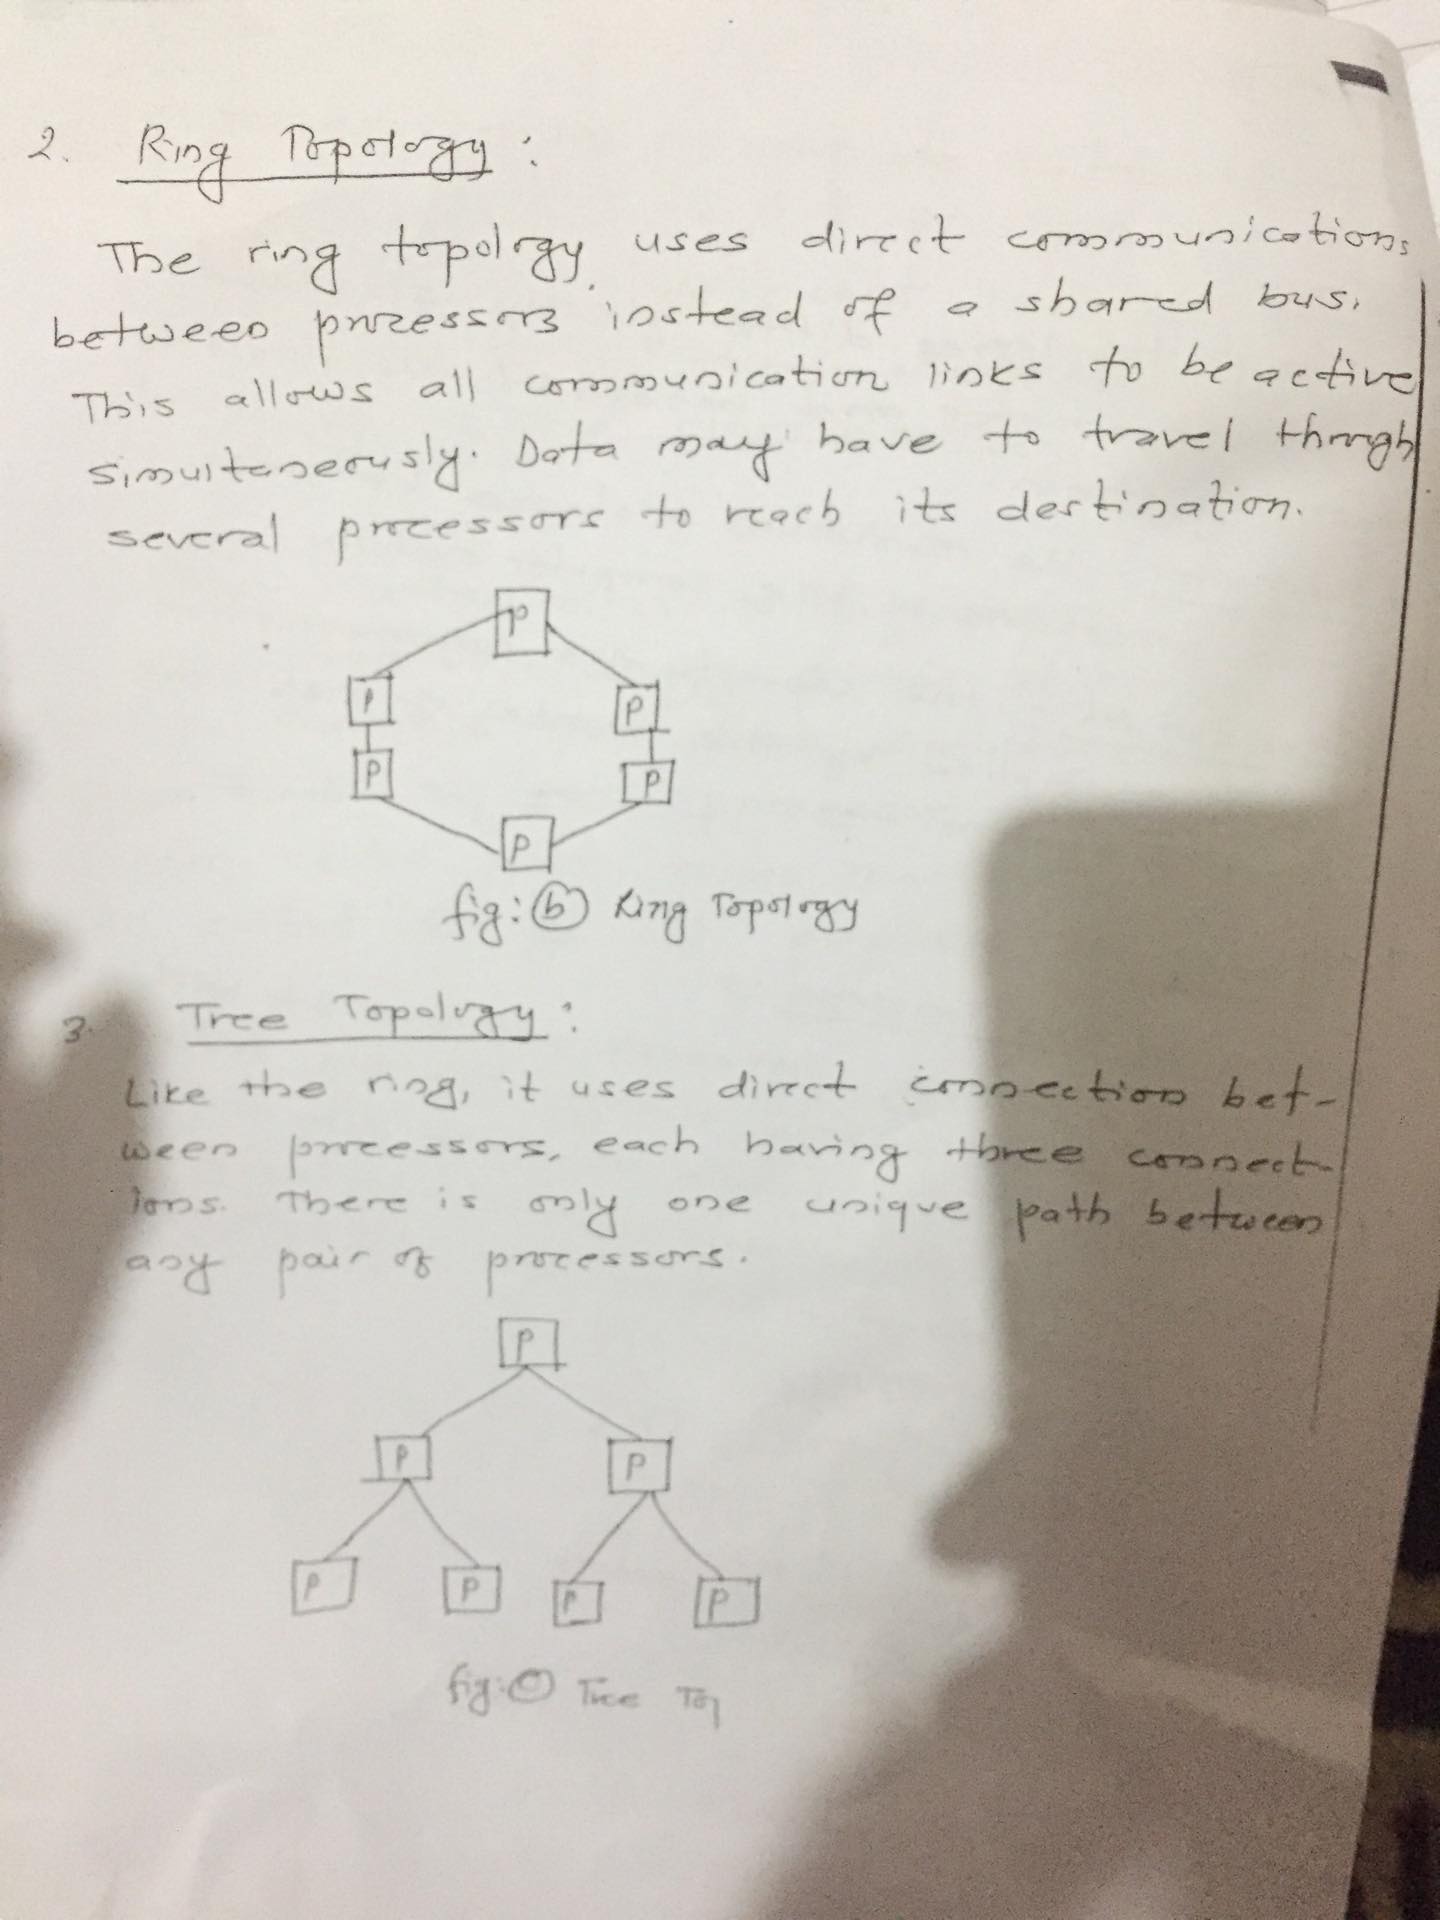 2. Ring Topology :
The ring topology uses direct communications
between processors instead of a shared bus.
This allows all communication links to be active
simultaneously. Data may have to travel through
several processors to reach its destination.
P
P P
P P
P
fig: (b) Ring Topology
3. Tree Topology :
Like the ring, it uses direct connection bet-
ween processors, each having three connect-
ions. There is only one unique path between
any pair of processors.
P
P P
P P P P
fig: (c) Tree Top